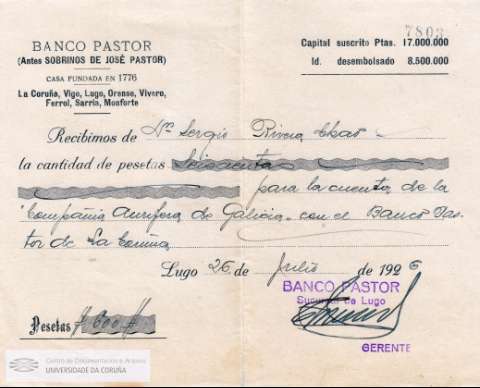 7803
BANCO PASTOR
(Antes SOBRINOS DE JOSÉ PASTOR)
CASA FUNDADA EN 1776
La Coruña, Vigo, Lugo, Orense, Vivero,
Ferrol, Sarria, Monforte
Capital suscrito Ptas. 17.000.000
Id. desembolsado 8.500.000
Recibimos de Dn. Sergio Rivera Chao
la cantidad de pesetas Seiscientas
para la cuenta de la
"Compañia Aurifera de Galicia" con el Banco Pas-
tor de La Coruña
Lugo 26 de Julio de 1926
BANCO PASTOR
Sucursal de Lugo
GERENTE
Pesetas # 600 #
Centro de Documentación e Arquivo
UNIVERSIDADE DA CORUÑA